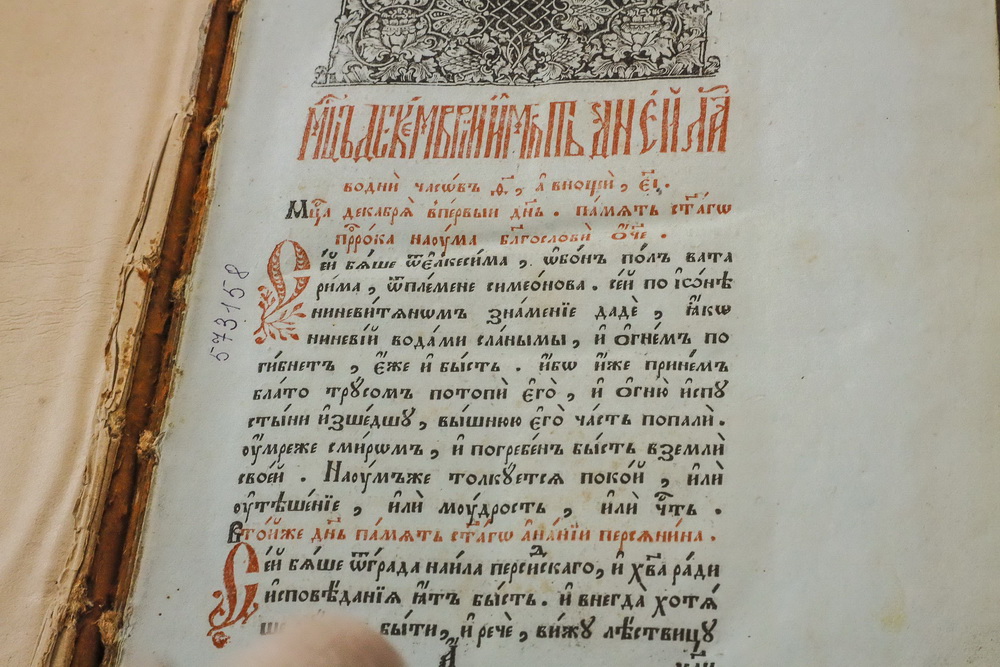 мц҃ъ декемврїй и҆мѣть дн҃ей л҃а
водни часѡвъ ѳ҃, а҆ внощи, є҃і.
Мцⷭ҇а декабрѧ̀ впервыи дн҃ь. па́мѧть ст҃а́гѡ
прⷪ҇ро́ка наоу́ма бл҃гословѝ ѻ҆́ч҃е.
Се́й бѧ́ше ѿє҆лкесі́ма, ѡ҆бо́нъ по́лъ вата
рі́ма, ѿпле́мене симео́нова. се́й по і҆ѡ́нѣ
ниневи́тѧнѡмъ зна́менїе дадѐ, ꙗ҆́кѡ
нинеѵі́й вода́ми сла́ными, и҆ ѻ҆гне́мъ по
ги́бнетъ, є҆́же и҆ бы́сть. и҆́бѡ и҆́же прине́мъ
бла́то трꙋ́сомъ потопѝ є҆го̀, и҆ ѻ҆гню̀ и҆спꙋ
сты́ни и҆зше́дшꙋ, вы́шнюю є҆го̀ ча́сть попалѝ.
оу҆́мреже смиромъ, и҆ погребе́нъ бы́сть вземлѝ
свое́й. Наоу́мъже толкꙋ́етсѧ поко́й, и҆лѝ
оу҆тѣше́нїе, и҆лѝ моу́дрость, и҆лѝ чⷭ҇ть.
Вто́йже дн҃ь па́мѧть ст҃а́гѡ а҆на́нїи персѧ́нина.
Се́й бѧ́ше ѿгра́да наи́ла перси́дскаго, и҆ хв҃а ра́ди
и҆сповѣ́данїѧ ꙗ҆́тъ бы́сть. и҆ внегда̀ хотѧ́
бы́ти, и҆ речѐ, ви́жꙋ лѣ́ствицꙋ
а҃
573158